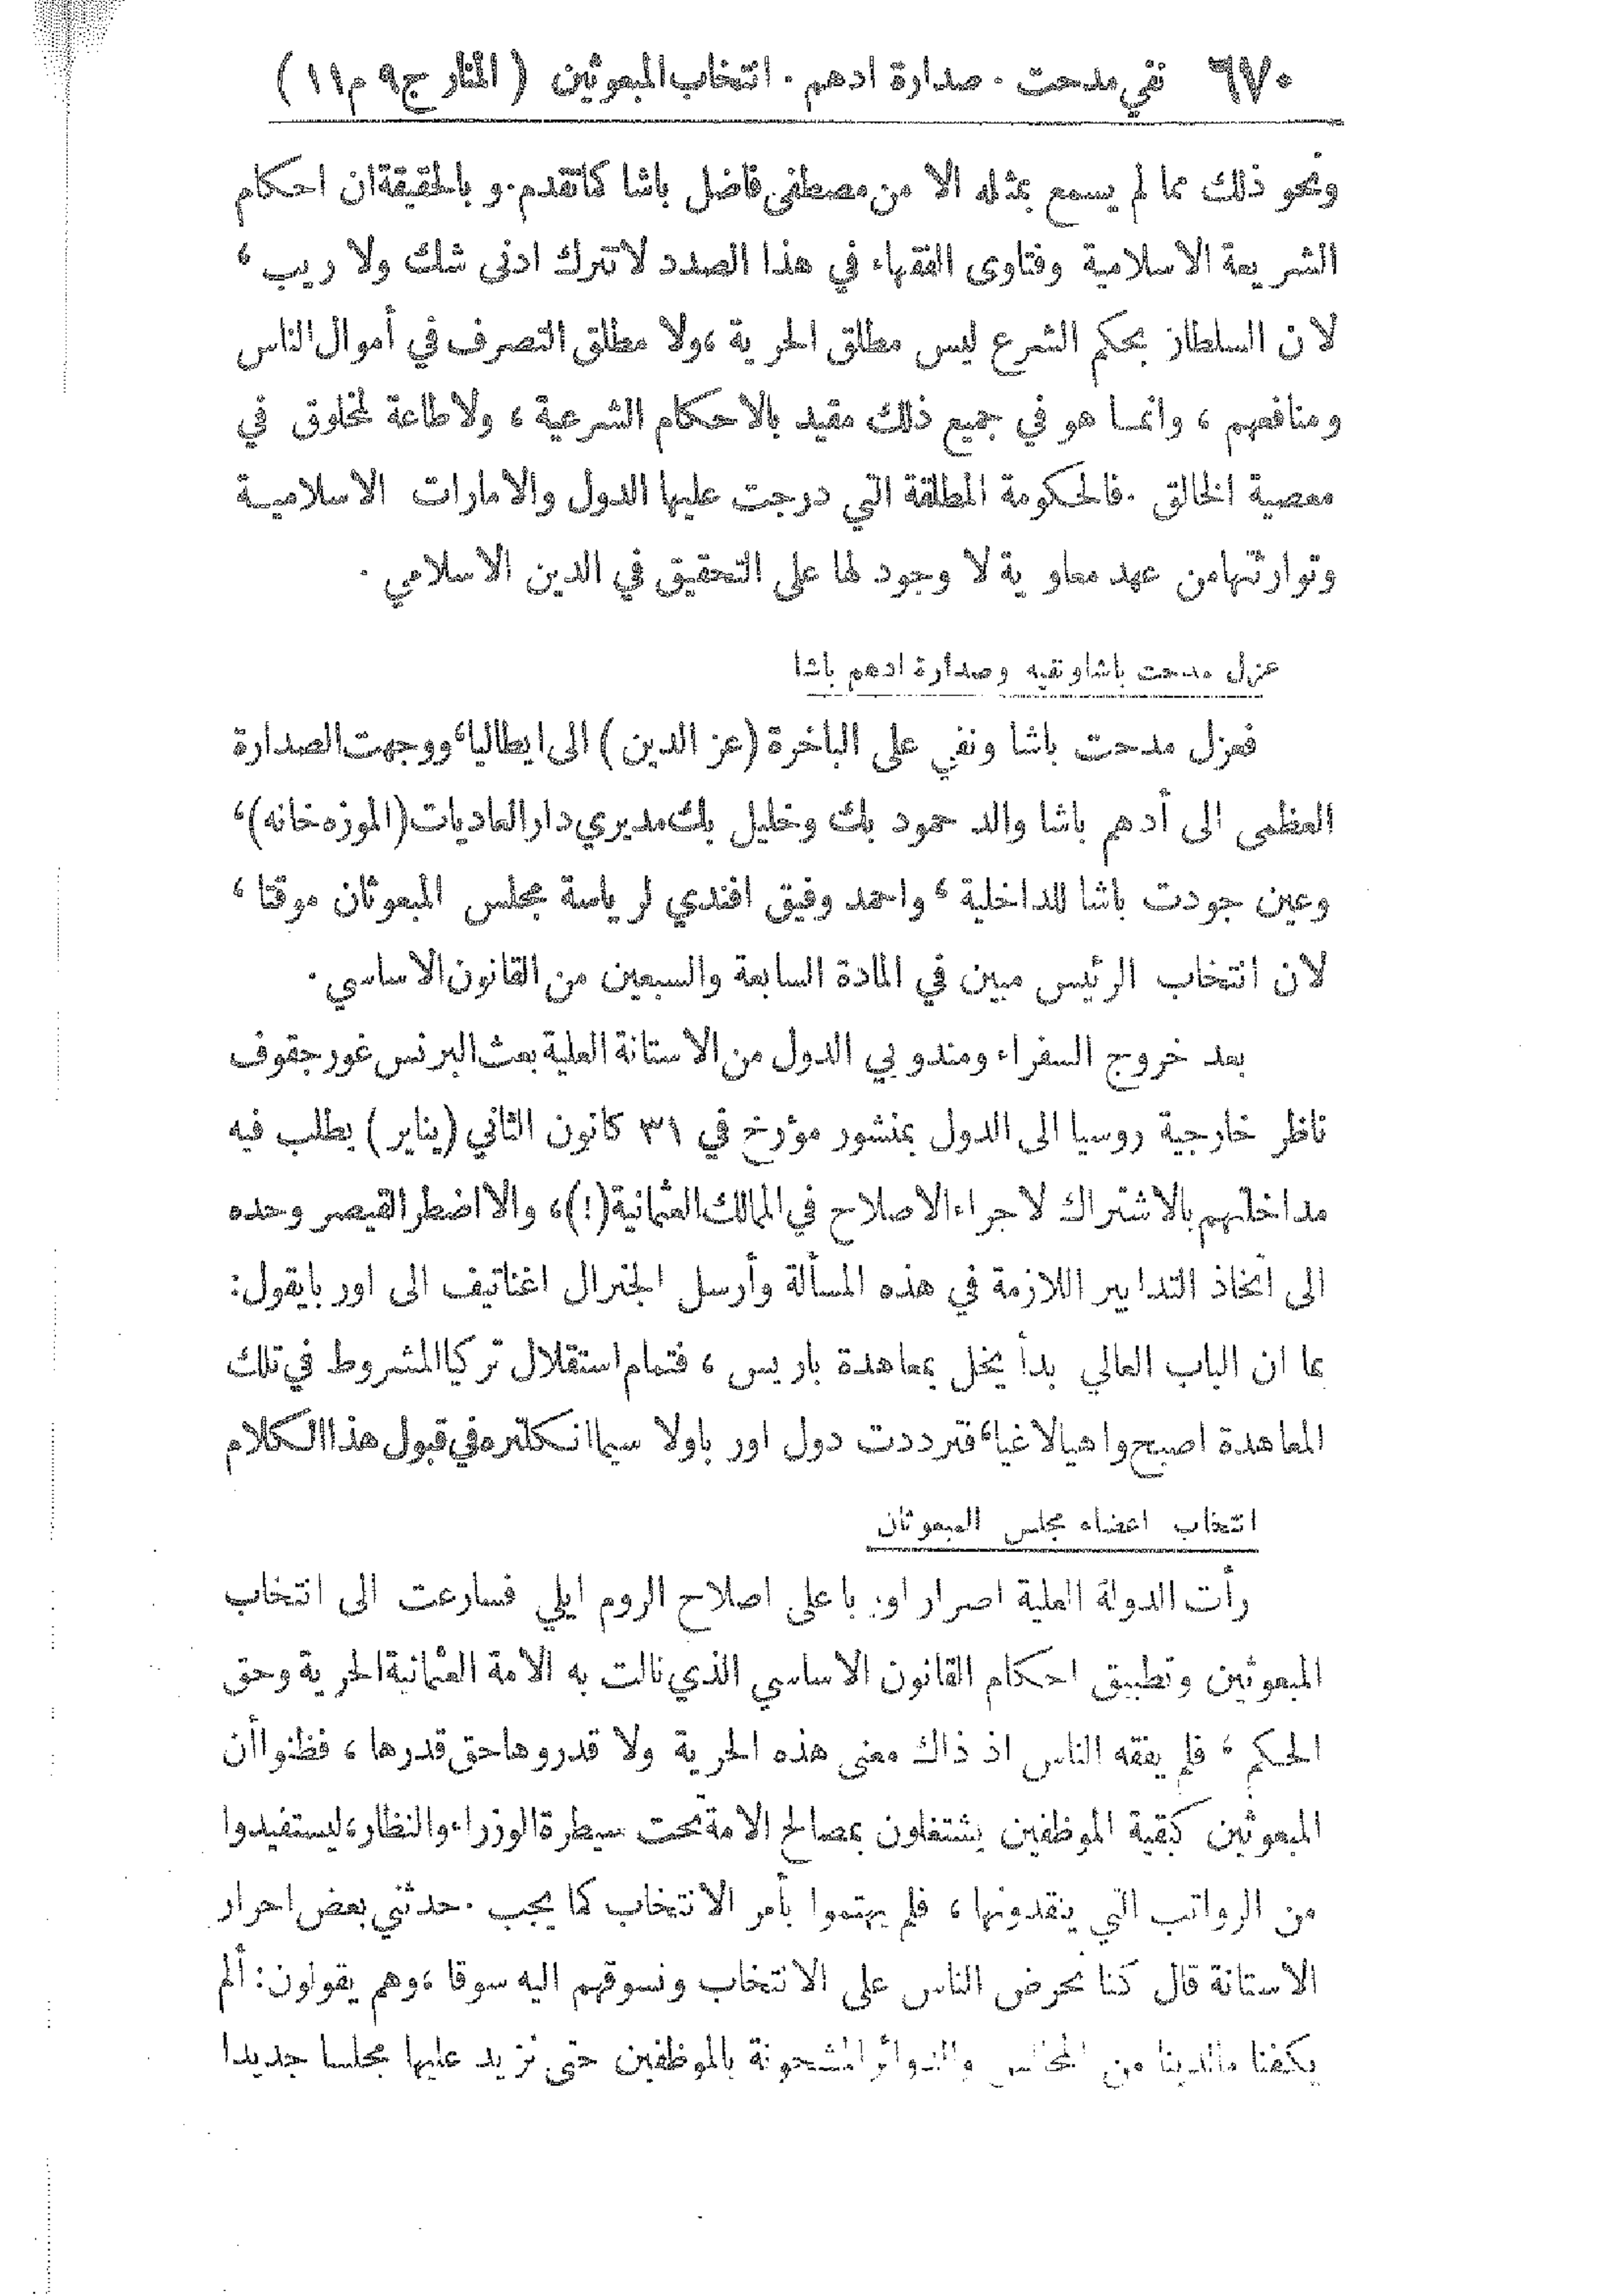 ٦٧٠ نفي مدحت . صدارة ادهم . انتخاب المبعوثين ( المنار ج٩ م١١ )
ونحو ذلك مما لم يسمع بمثله الا من مصطفى فاضل باشا كما تقدم . و بالحقيقة ان احكام
الشريعة الاسلامية وفتاوى الفقهاء في هذا الصدد لا تترك ادنى شك ولا ريب ،
لان السلطان بحكم الشرع ليس مطلق الحرية ، ولا مطلق التصرف في أموال الناس
ومنافعهم ، وانما هو في جميع ذلك مقيد بالاحكام الشرعية ، ولا طاعة لمخلوق في
معصية الخالق . فالحكومة المطلقة التي درجت عليها الدول والامارات الاسلامية
وتوارثتها من عهد معاوية لا وجود لها على التحقيق في الدين الاسلامي .
عزل مدحت باشا ونفيه وصدارة ادهم باشا
فعزل مدحت باشا ونفي على الباخرة (عز الدين) الى ايطاليا ، ووجهت الصدارة
العظمى الى أدهم باشا والد حمود بك وخليل بك مديري دار العاديات (الموزه خانه) ،
وعين جودت باشا للداخلية ، واحمد وفيق افندي لرياسة مجلس المبعوثان موقتا ،
لان انتخاب الرئيس مبين في المادة السابعة والسبعين من القانون الاساسي .
بعد خروج السفراء ومندوبي الدول من الاستانة العلية بعث البرنس غورجقوف
ناظر خارجية روسيا الى الدول بمنشور مؤرخ في ٣١ كانون الثاني (يناير) يطلب فيه
مداخلتهم بالاشتراك لاجراء الاصلاح في الممالك العثمانية (!) ، والا اضطر القيصر وحده
الى اتخاذ التدابير اللازمة في هذه المسألة وأرسل الجنرال اغناتيف الى اوربا يقول :
بما ان الباب العالي بدأ يخل بمعاهدة باريس ، فتمام استقلال تركيا المشروط في تلك
المعاهدة اصبح واهيا لاغيا ، فترددت دول اوربا ولا سيما انكلتره في قبول هذا الكلام
انتخاب اعضاء مجلس المبعوثان
رأت الدولة العلية اصرار اوربا على اصلاح الروم ايلي فسارعت الى انتخاب
المبعوثين وتطبيق احكام القانون الاساسي الذي نالت به الامة العثمانية الحرية وحق
الحكم ، فلم يفقه الناس اذ ذاك معنى هذه الحرية ولا قدروها حق قدرها ، فظنوا أن
المبعوثين كبقية الموظفين يشتغلون بمصالح الامة تحت سيطرة الوزراء والنظار ، ليستفيدوا
من الرواتب التي ينقدونها ، فلم يهتموا بأمر الانتخاب كما يجب . حدثني بعض احرار
الاستانة قال كنا نحرض الناس على الانتخاب ونسوقهم اليه سوقا ، وهم يقولون : ألم
يكفنا مالدينا من المجالس والدوائر المشحونة بالموظفين حتى نزيد عليها مجلسا جديدا